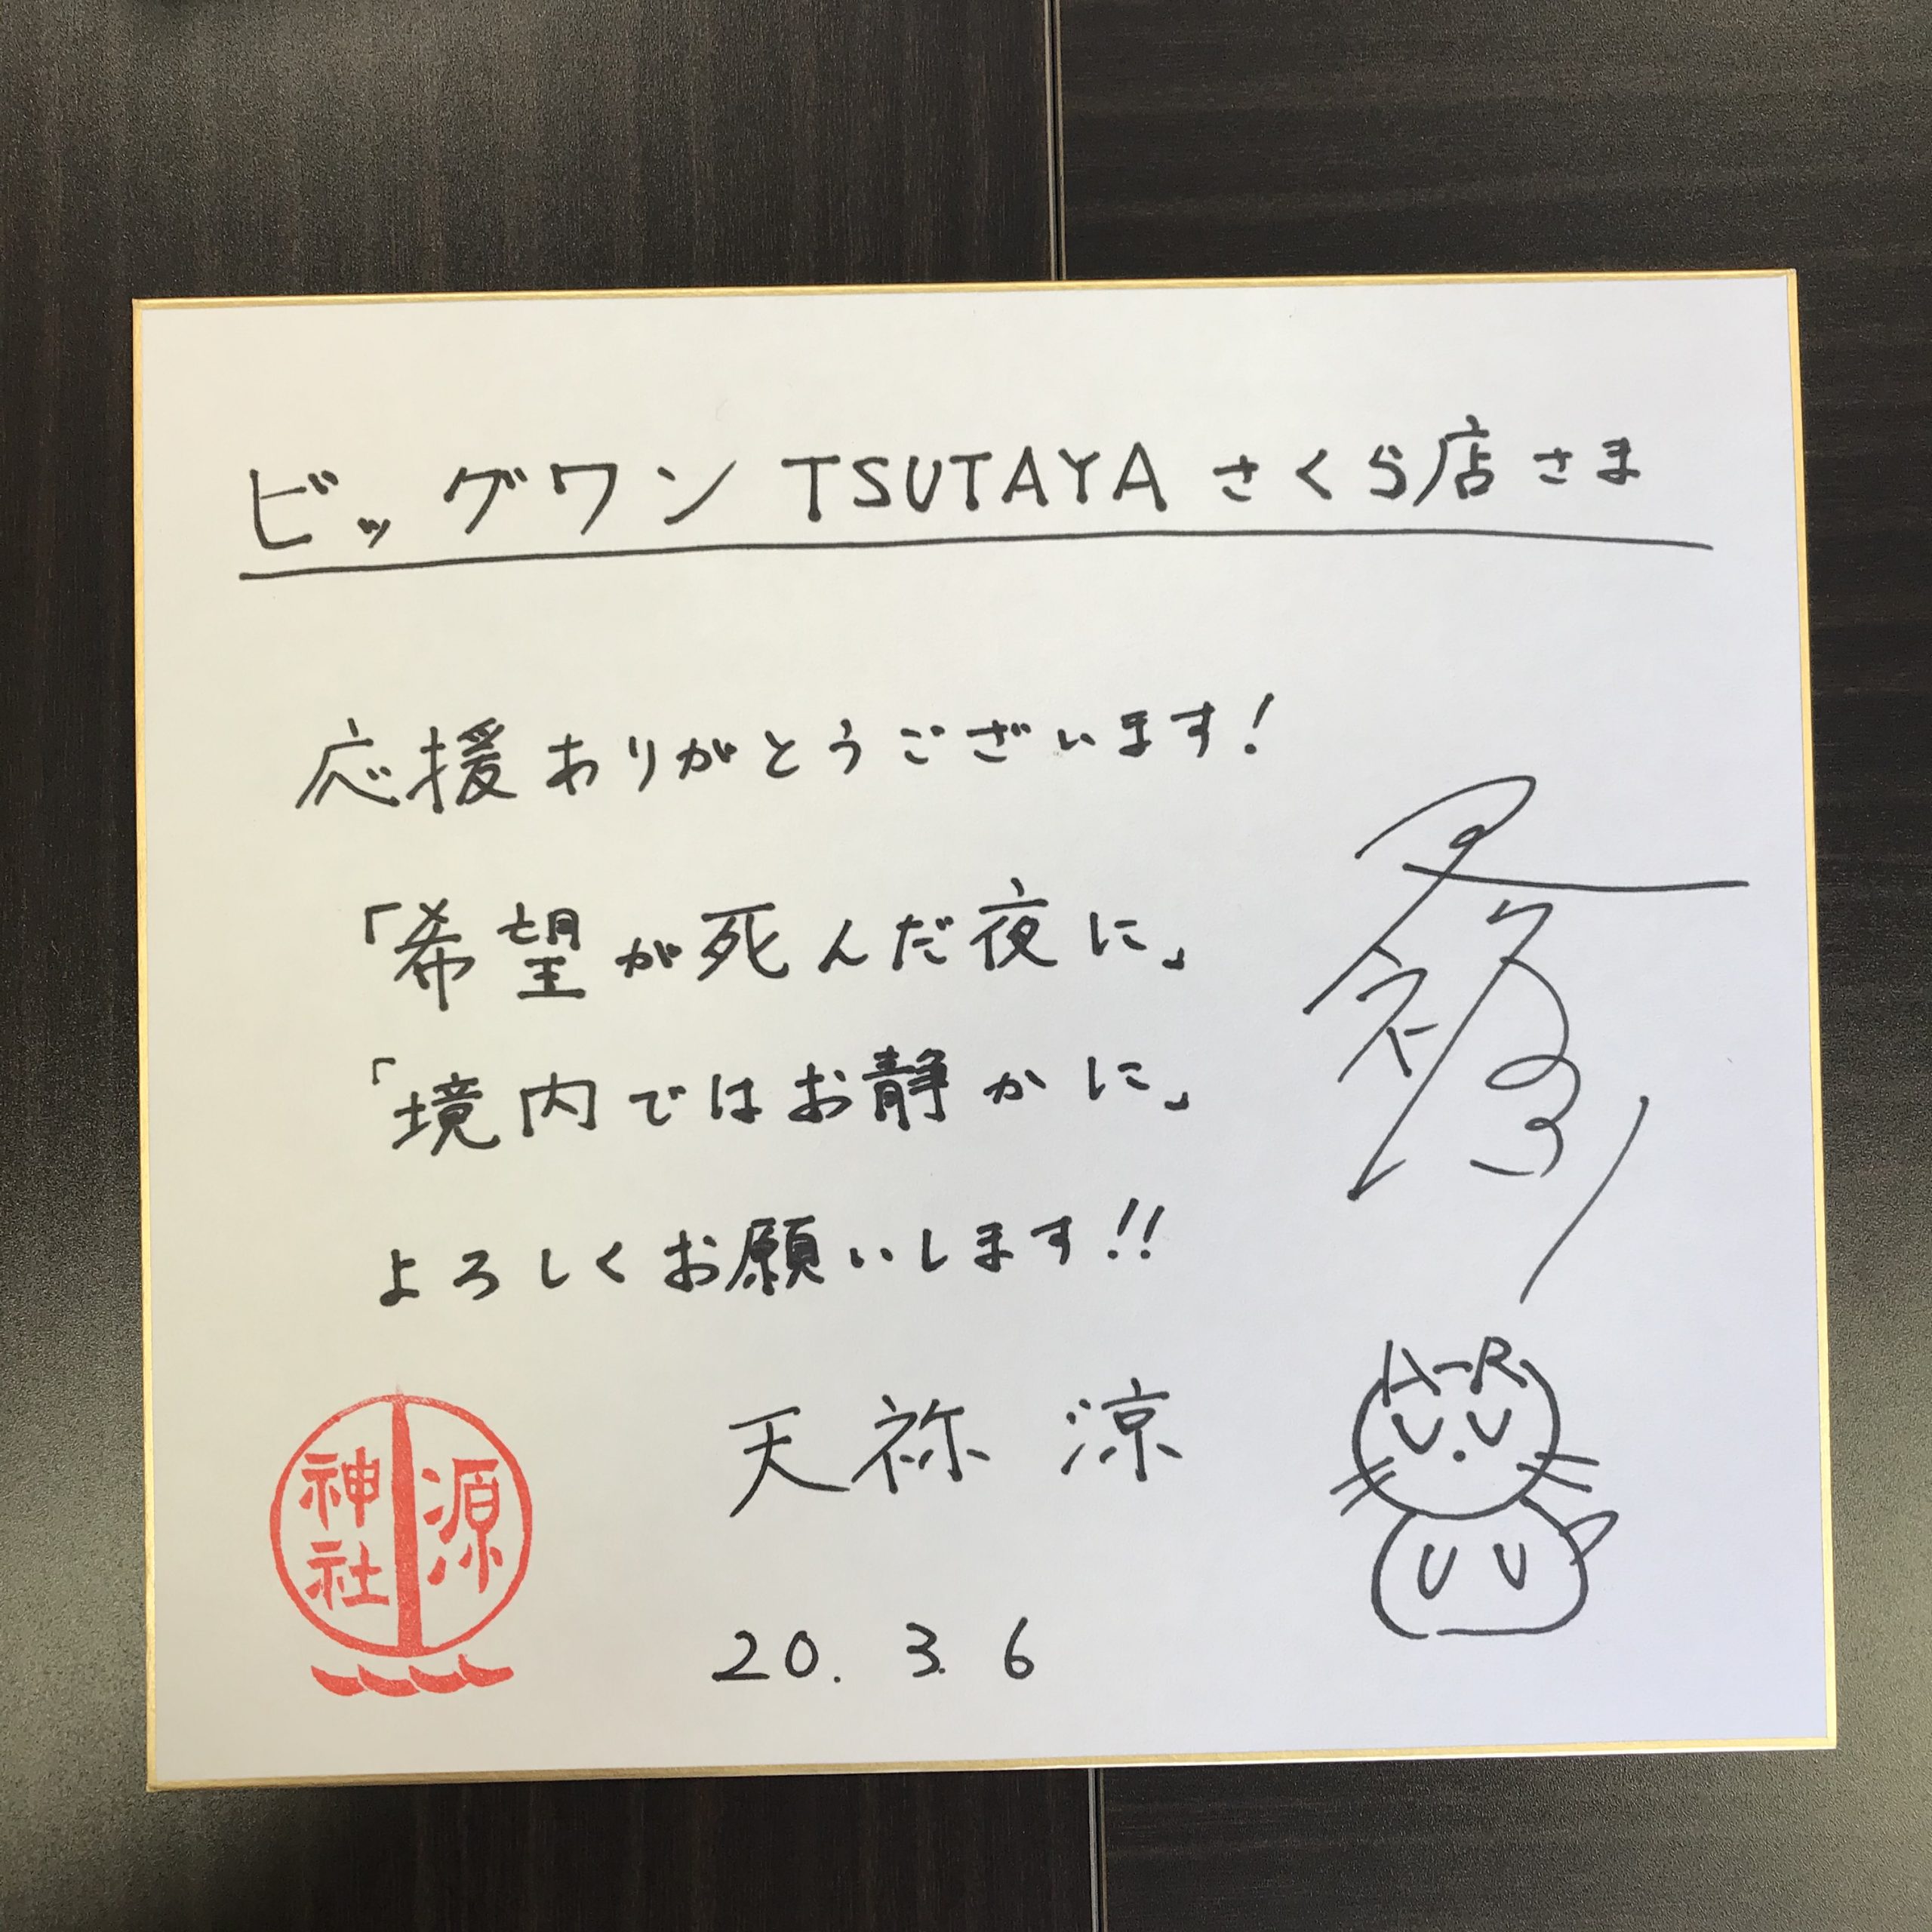 ビッグワン TSUTAYA さくら店さま
応援ありがとうございます!
「希望が死んだ夜に」
「境内ではお静かに」
よろしくお願いします!!
天祢 涼
20. 3. 6
A-R
源
神社